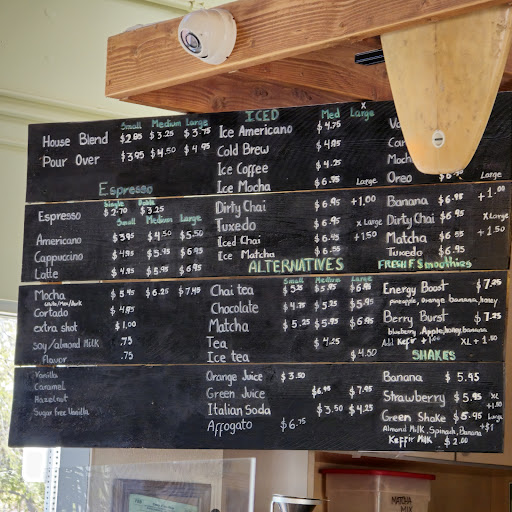 Small Medium Large
House Blend $2.85 $3.25 $3.75
Pour Over $3.95 $4.50 $4.95
Espresso
Single Doble
Espresso $2.70 $3.25
Small Medium Large
Americano $3.95 $4.50 $5.50
Cappuccino $4.95 $5.95 $6.95
Latte $4.95 $5.95 $6.95
Mocha $5.45 $6.25 $7.45
Cortado $4.95
extra shot $1.00
Soy/almond Milk .75
Flavor .75
Vanilla
Caramel
Hazelnut
Sugar Free Vanilla
ICED
Med X Large
Ice Americano $4.75
Cold Brew $4.95
Ice Coffee $4.25
Ice Mocha $6.95 Large
Dirty Chai $6.95 +1.00
Tuxedo $6.95 X Large
Iced Chai $6.95 +1.50
Ice Matcha $6.55
ALTERNATIVES
Small Medium Large
Chai tea $5.25 $5.95 $6.95
Chocolate $4.75 $5.25 $5.95
Matcha $5.25 $5.95 $6.95
Tea $4.25
Ice tea $4.50
Orange Juice $3.50
Green Juice $6.95 $7.95
Italian Soda $3.50 $4.25
Affogato $6.75
Oreo Large
Banana $6.95 +1.00
Dirty Chai $6.95 X Large
Matcha $6.55 +1.50
Tuxedo $6.95
FRESH F. Smoothies
Energy Boost $7.25
pineapple, orange, banana, honey
Berry Burst $7.25
blueberry, Apple, honey, banana
Add Kefir +1.00 XL +1.50
SHAKES
Banana $5.95
Strawberry $5.95 XL +1.50
Green Shake $6.95 Large
Almond Milk, Spinach, Banana +$1
Keffir Milk $2.00
MATCHA
MIX